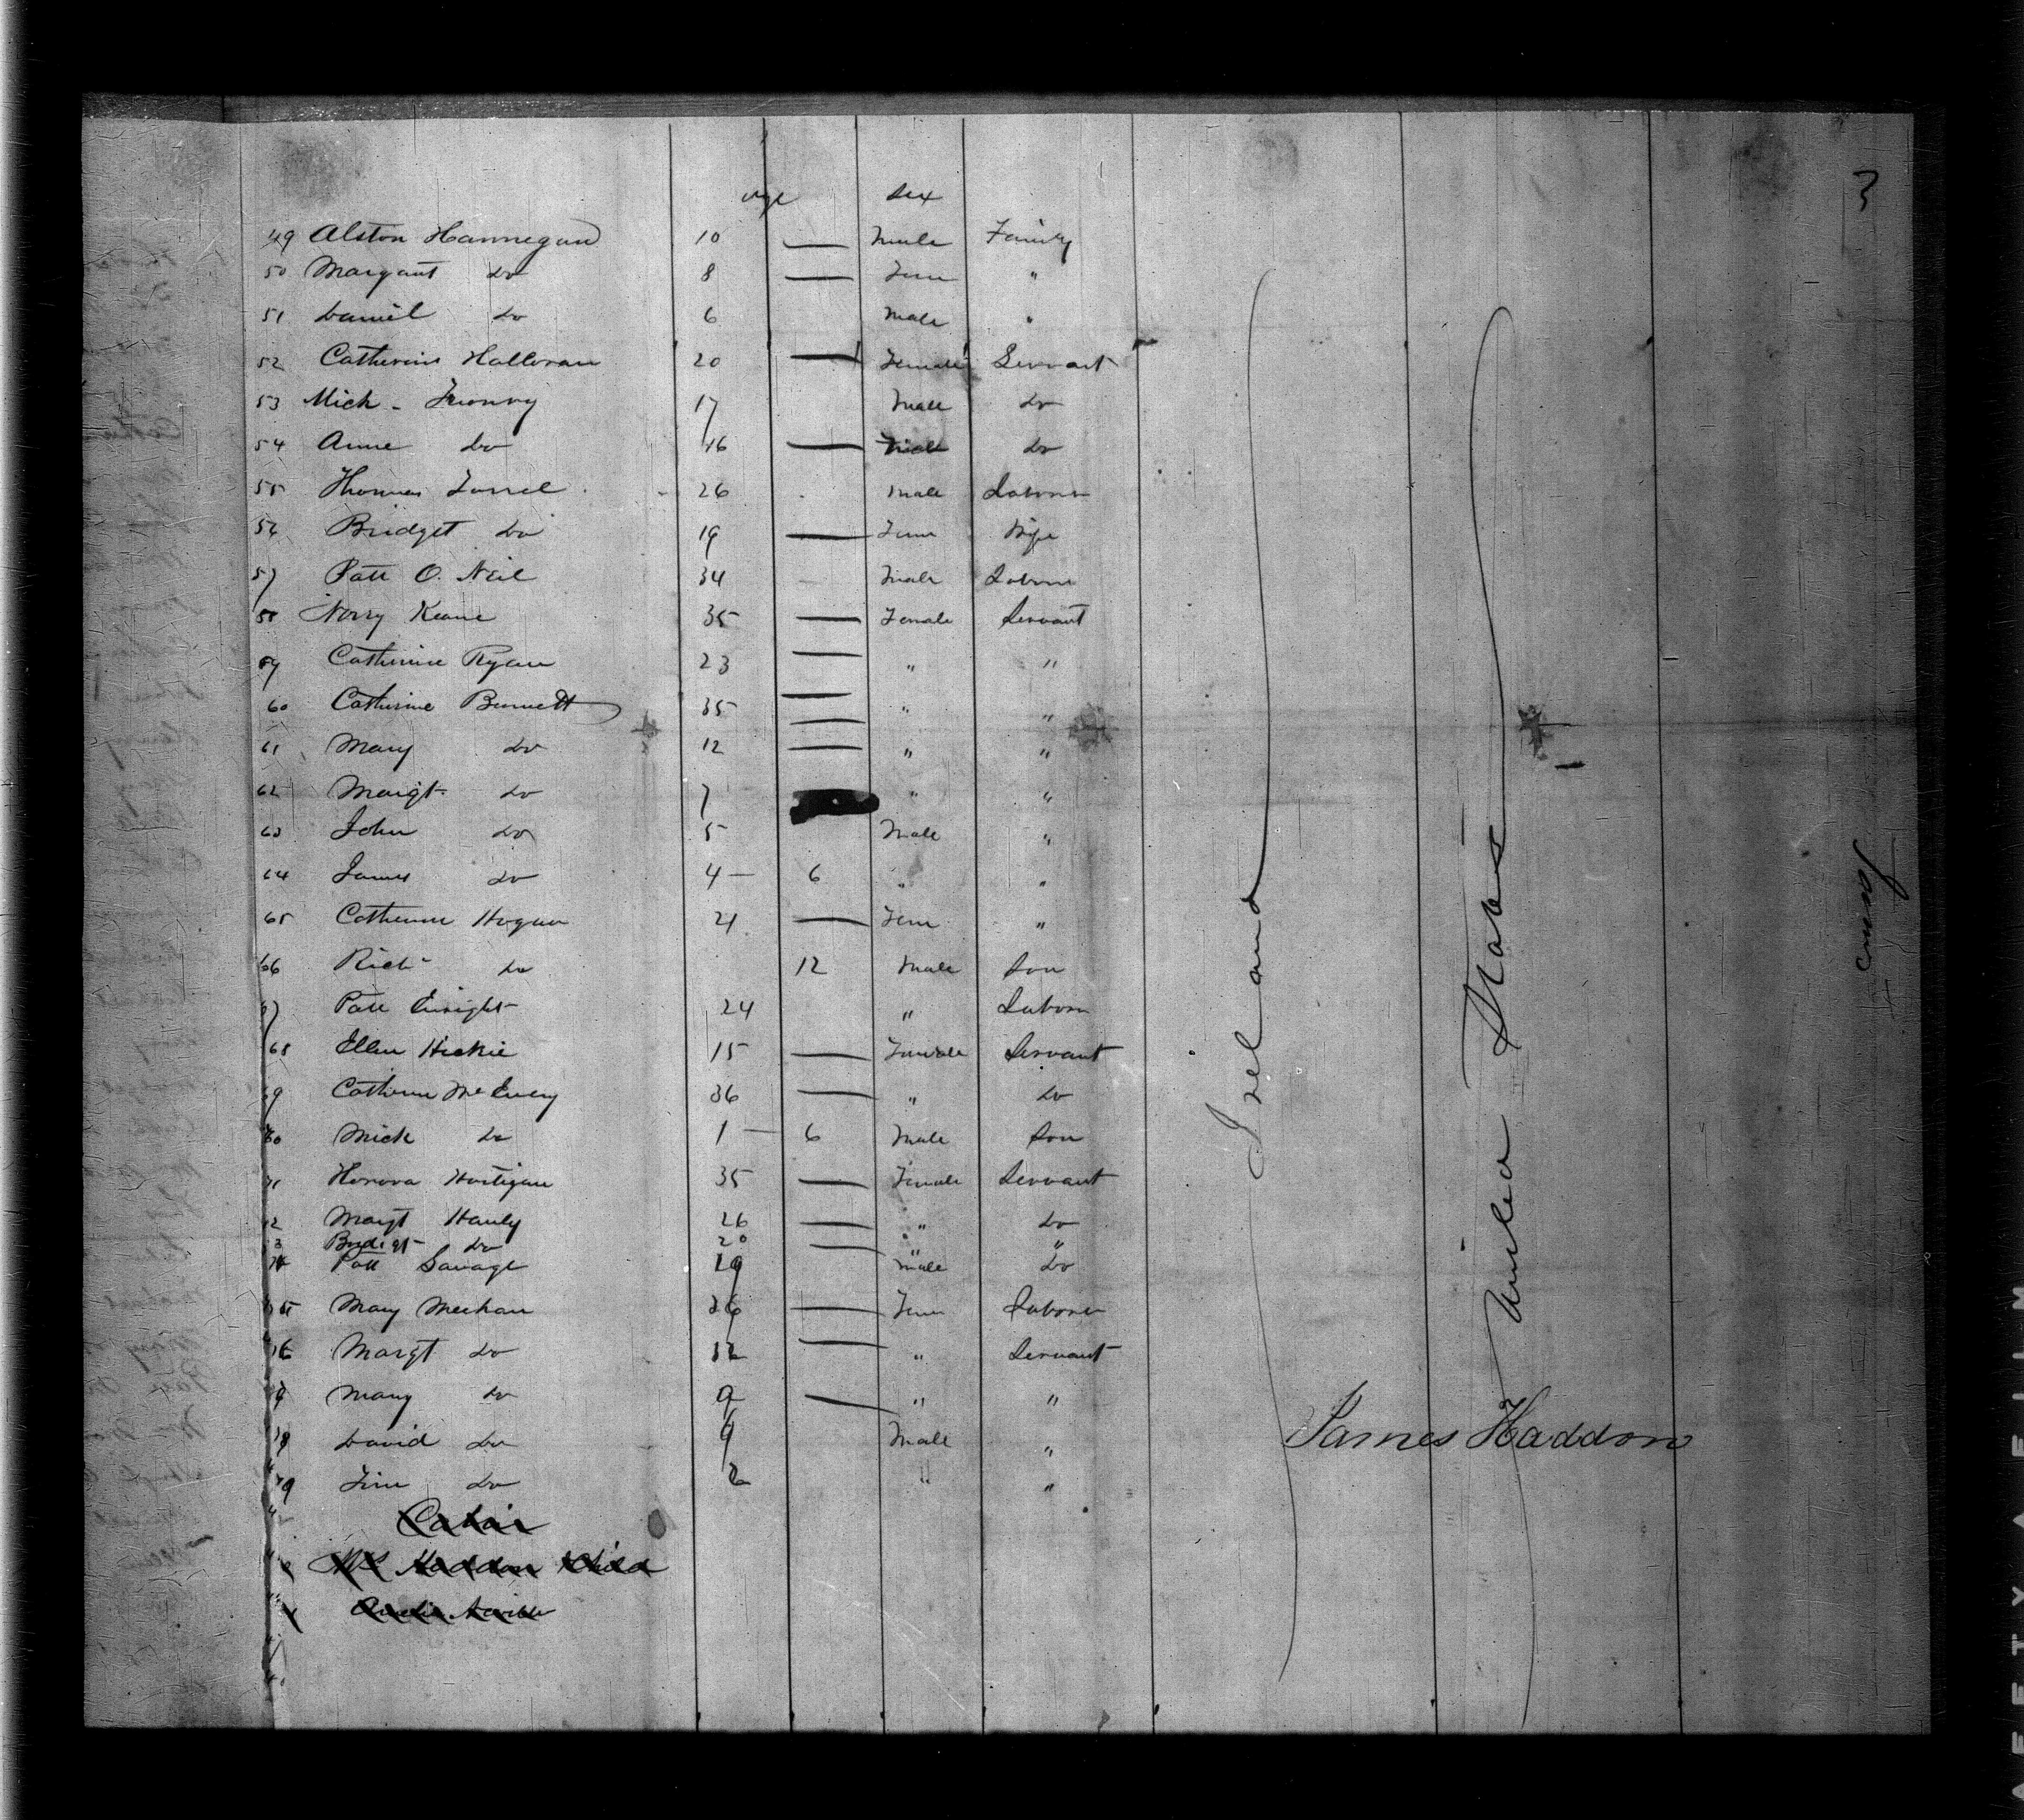 age sex
49 Alston Hannegan 10 — Male Family
50 Margaut do 8 — Fem "
51 Daniel do 6 Male "
52 Catherine Halloran 20 — Female Servant
53 Mich - 17 Male do
54 Anne do 16 — do
55 Thomas 26 Male Laborer
56 Bridget do 19 — Fem Wife
57 Patt O. Neil 34 Male Laborer
58 Norry Keane 35 — Female Servant
59 Catherine Ryan 23 — " "
60 Catherine Bennett 35 — " "
61 Mary do 12 — " "
62 Margt do 7 " "
63 John do 5 Male "
64 James do 4 — 6 " "
65 Catherine Hogan 21 — Fem "
66 Rich do 12 Male Son
67 Patt Enright 24 " Laborer
68 Ellen Hickie 15 — Female Servant
69 Catherine Mc Evey 36 — " do
70 Mick do 1 — 6 Male Son
71 Honora Hartigan 35 — Female Servant
72 Margt Hanly 26 — " do
73 Bridgt do 20 — " "
74 Patt Savage 29 Male do
75 Mary Meehan 36 — Fem Laborer
76 Margt do 12 — " Servant
Mary do 9 — " "
David do Male "
79 Tim do 2 " "
Cabin
Haddon Child
Ireland
United States
James Haddon
3